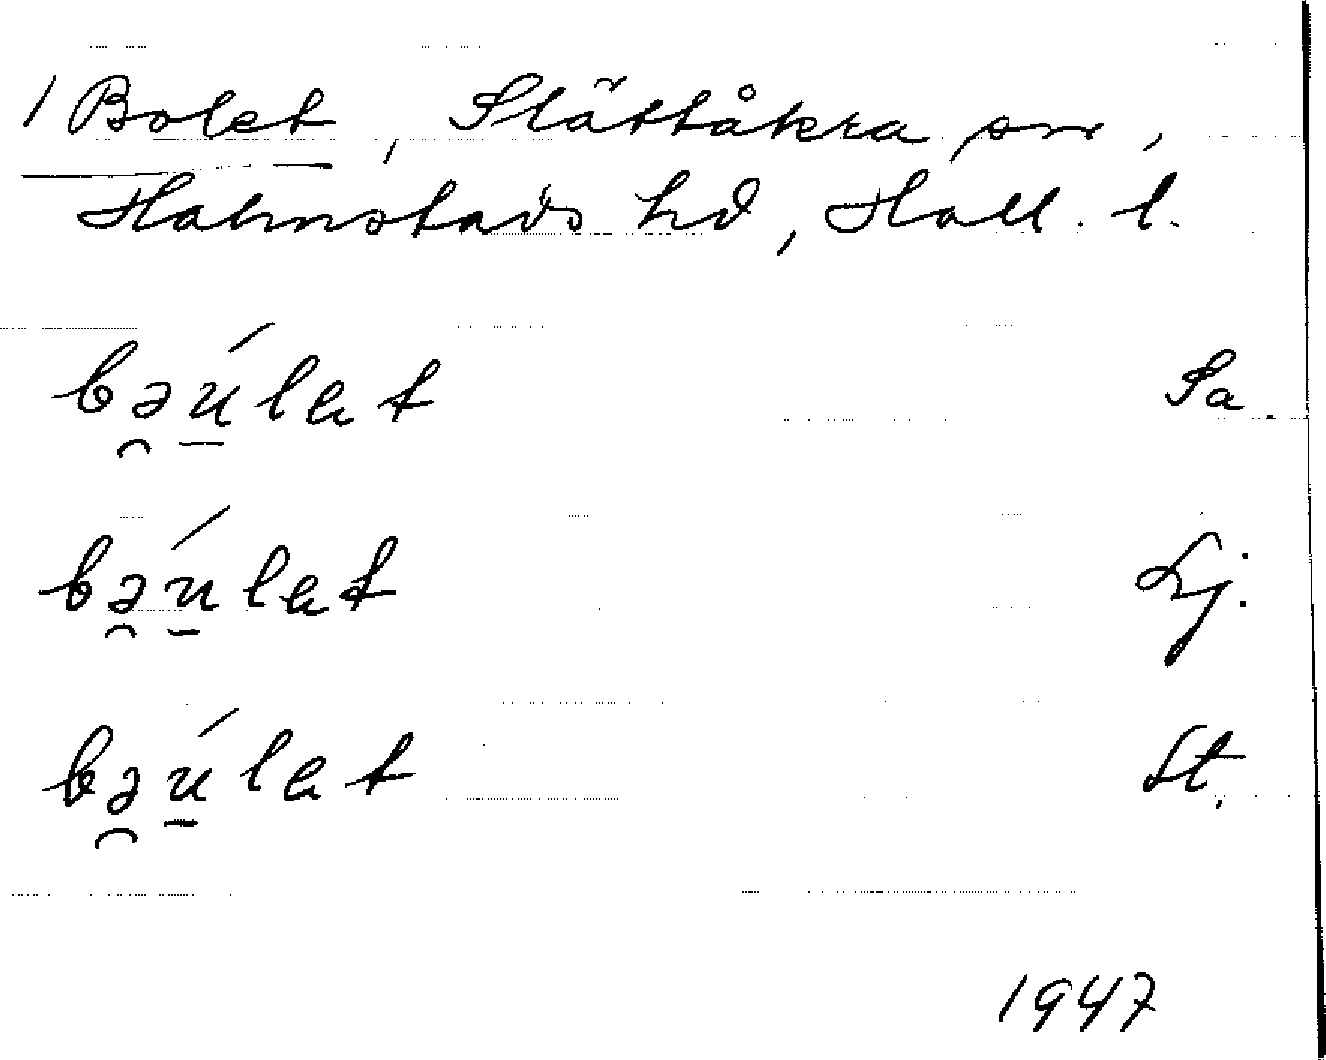 1 Bolet, Slättåkra sn,
Halmstads hd, Hall. l.
bə̯ú̱lət Sa.
bə̯ú̱lət Lj.
bə̯ú̱lət St.
1947